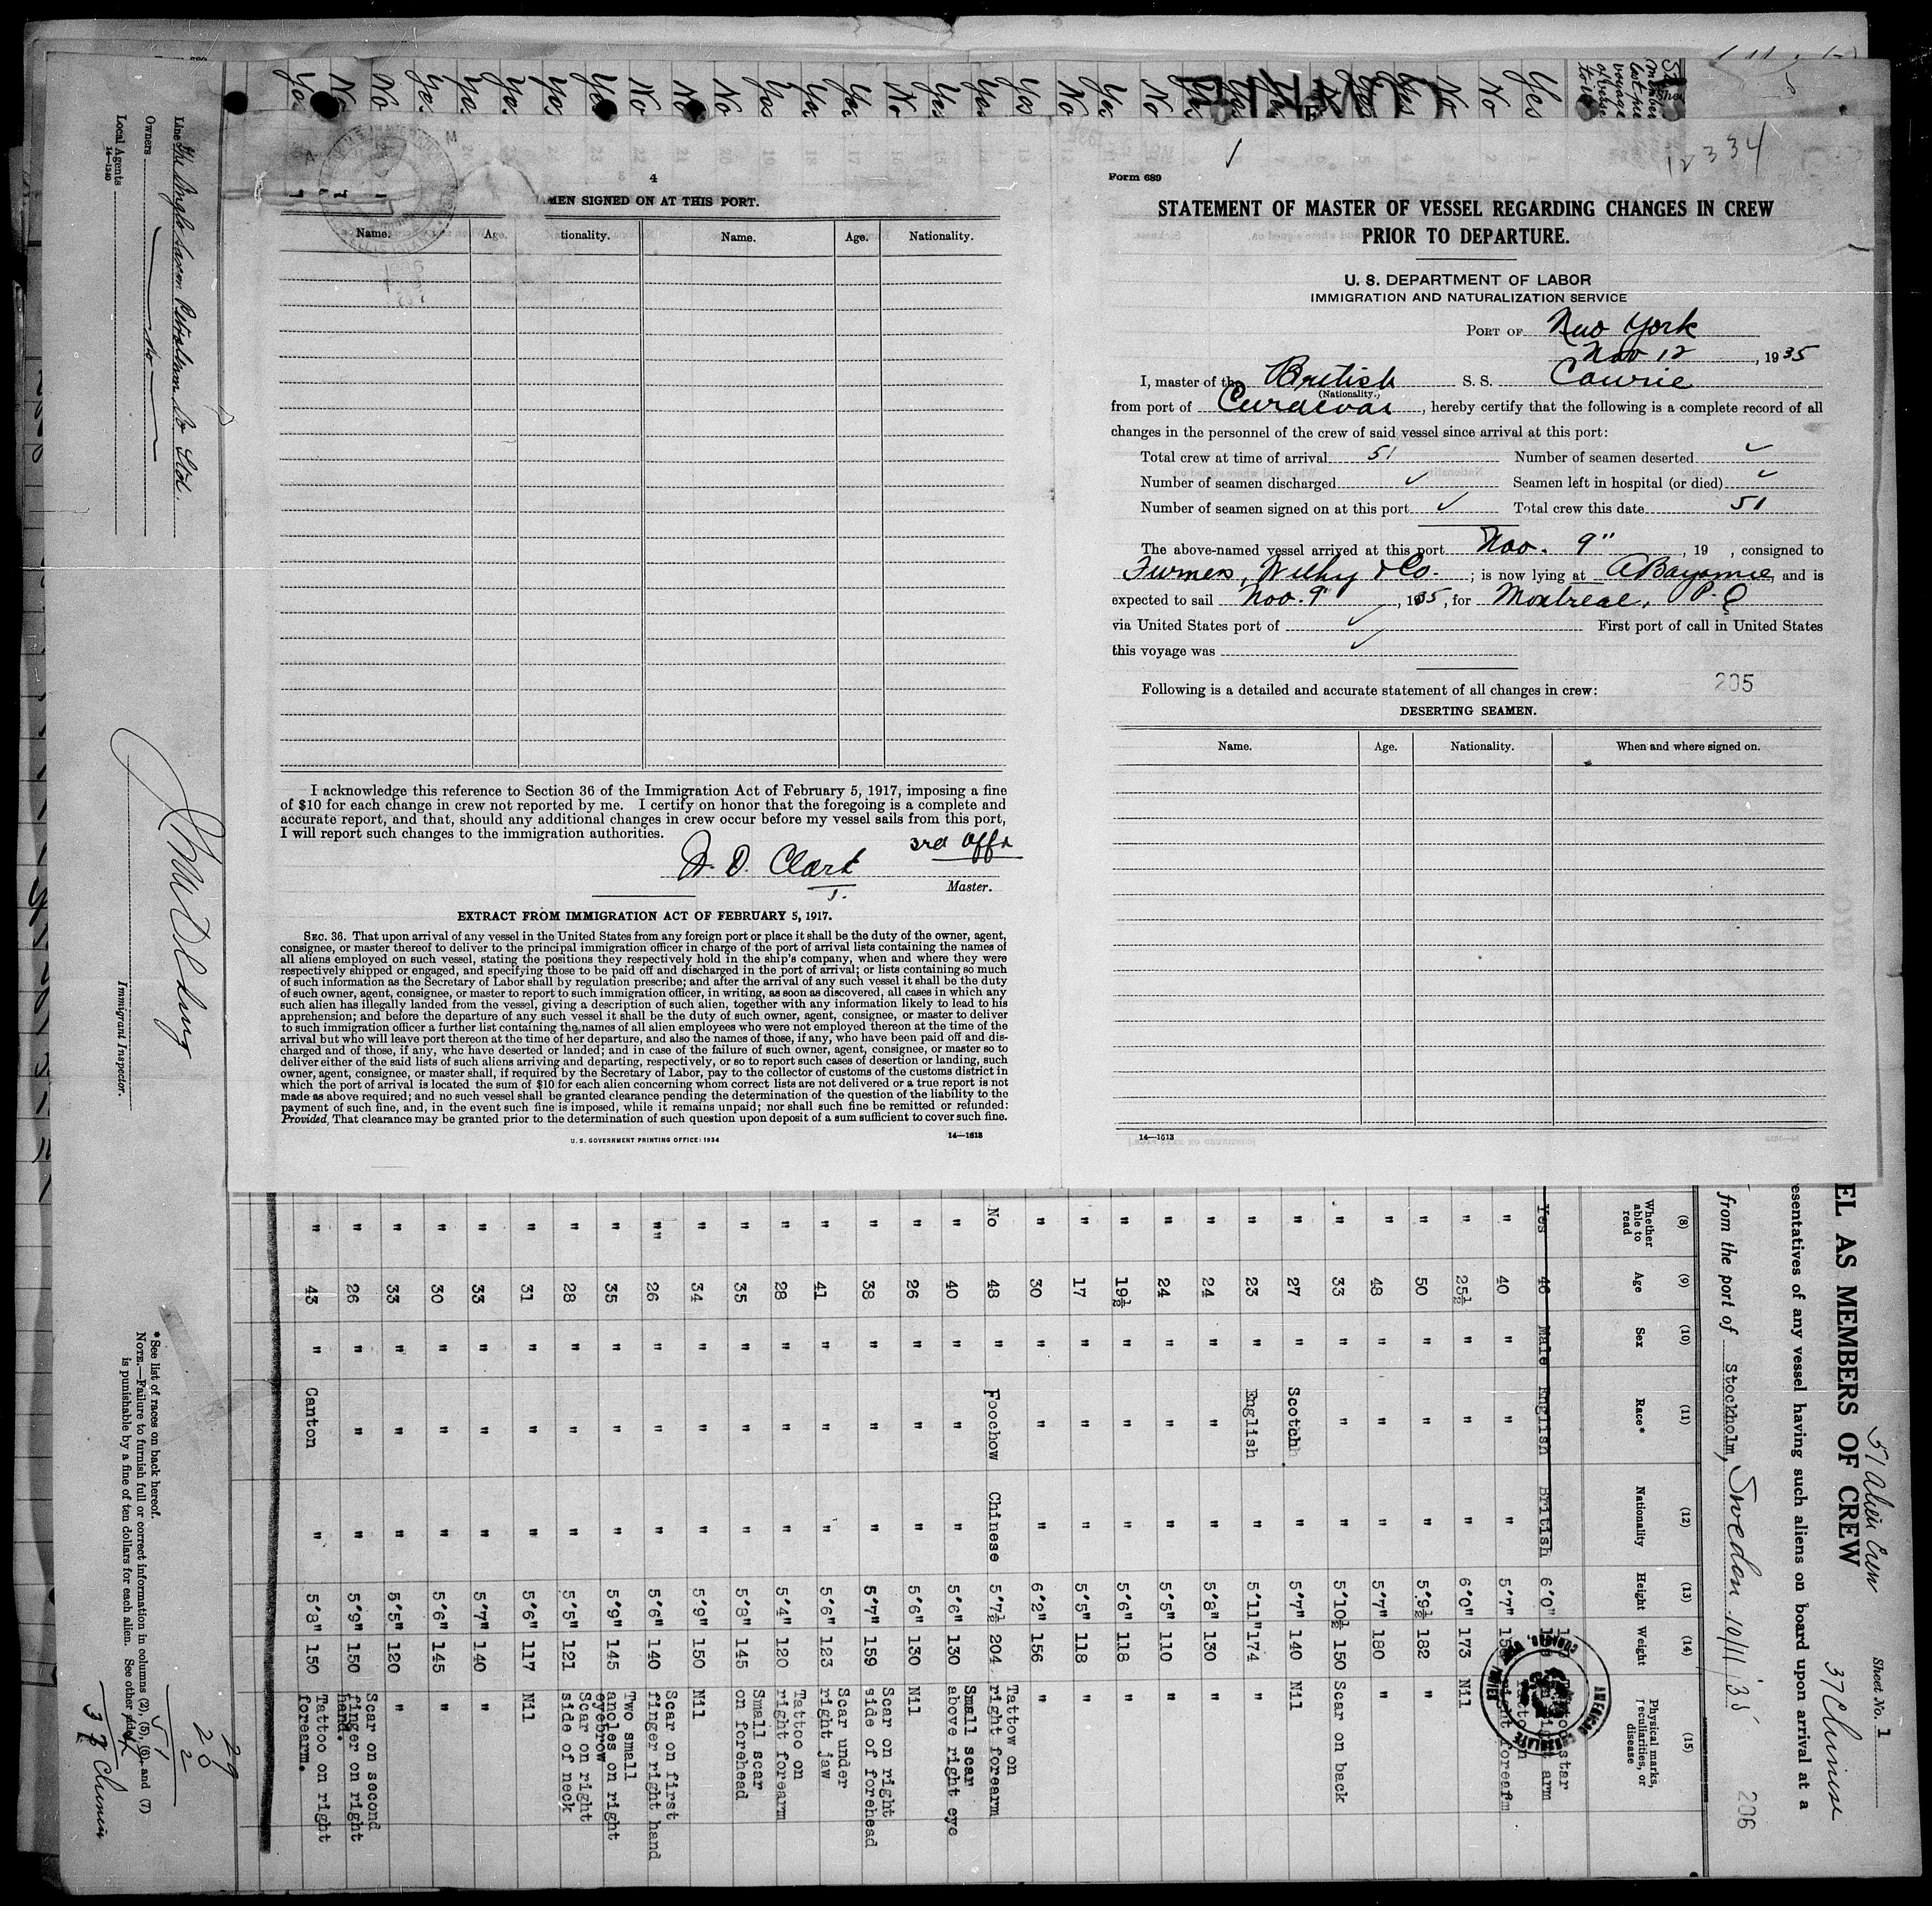 12334
4
MEN SIGNED ON AT THIS PORT.
Name. Age. tionality. Name. Age. Nationality.
I acknowledge this reference to Section 36 of the Immigration Act of February 5, 1917, imposing a fine
of $10 for each change in crew not reported by me. I certify on honor that the foregoing is a complete and
accurate report, and that, should any additional changes in crew occur before my vessel sails from this port,
I will report such changes to the immigration authorities.
3rd Offr
D. Clark
Master.
EXTRACT FROM IMMIGRATION ACT OF FEBRUARY 5, 1917.
SEC. 36. That upon arrival of any vessel in the United States from any foreign port or place it shall be the duty of the owner, agent,
consignee, or master thereof to deliver to the principal immigration officer in charge of the port of arrival lists containing the names of
all aliens employed on such vessel, stating the positions they respectively hold in the ship's company, when and where they were
respectively shipped or engaged, and specifying those to be paid off and discharged in the port of arrival; or lists containing so much
of such information as the Secretary of Labor shall by regulation prescribe; and after the arrival of any such vessel it shall be the duty
of such owner, agent, consignee, or master to report to such immigration officer, in writing, as soon as discovered, all cases in which any
such alien has illegally landed from the vessel, giving a description of such alien, together with any information likely to lead to his
apprehension; and before the departure of any such vessel it shall be the duty of such owner, agent, consignee, or master to deliver
to such immigration officer a further list containing the names of all alien employees who were not employed thereon at the time of the
arrival but who will leave port thereon at the time of her departure, and also the names of those, if any, who have been paid off and dis-
charged and of those, if any, who have deserted or landed; and in case of the failure of such owner, agent, consignee, or master so to
deliver either of the said lists of such aliens arriving and departing, respectively, or so to report such cases of desertion or landing, such
owner, agent, consignee, or master shall, if required by the Secretary of Labor, pay to the collector of customs of the customs district in
which the port of arrival is located the sum of $10 for each alien concerning whom correct lists are not delivered or a true report is not
made as above required; and no such vessel shall be granted clearance pending the determination of the question of the liability to the
payment of such fine, and, in the event such fine is imposed, while it remains unpaid; nor shall such fine be remitted or refunded:
Provided, That clearance may be granted prior to the determination of such question upon deposit of a sum sufficient to cover such fine.
U. S. GOVERNMENT PRINTING OFFICE: 1934 14—1613
Form 689
STATEMENT OF MASTER OF VESSEL REGARDING CHANGES IN CREW
PRIOR TO DEPARTURE.
U. S. DEPARTMENT OF LABOR
IMMIGRATION AND NATURALIZATION SERVICE
PORT OF New York
Nov 12, 1935
I, master of the British S. S. Cowrie
(Nationality.)
from port of , hereby certify that the following is a complete record of all
changes in the personnel of the crew of said vessel since arrival at this port:
Total crew at time of arrival 51 Number of seamen deserted ✓
Number of seamen discharged ✓ Seamen left in hospital (or died) ✓
Number of seamen signed on at this port ✓ Total crew this date 51
The above-named vessel arrived at this port Nov. 9", 19 , consigned to
Furness, Withy & Co. ; is now lying at Bayonne, and is
expected to sail Nov. 9", 1935, for Montreal, P. Q
via United States port of ✓ First port of call in United States
this voyage was ✓
205
Following is a detailed and accurate statement of all changes in crew:
DESERTING SEAMEN.
Name. Age. Nationality. When and where signed on.
14—1613
Sheet No. 1
51 Alien Crew 37 Chinese
EL AS MEMBERS OF CREW
esentatives of any vessel having such aliens on board upon arrival at a
from the port of Stockholm, Sweden 10/11/35 206
(8) (9) (10) (11) (12) (13) (14) (15)
Whether able to read Age Sex Race* Nationality Height Weight Physical marks, peculiarities, or disease
Yes 46 Male English British 6'0"
" 40 " " " 5'7" right forearm
" 25½ " " " 6'0" 173 Nil
" 50 " " " 5'9½ 182 "
" 48 " " " 5'7" 180 "
" 33 " " " 5'10½ 150 Scar on back
" 27 " Scotch " 5'7" 140 Nil
" 23 " English " 5'11" 174 "
" 24 " " " 5'8" 130 "
" 24 " " " 5'5" 110 "
" 19½ " " " 5'6" 118 "
" 17 " " " 5'5" 118 "
" 30 " " " 6'2" 156 "
No 48 " Foochow Chinese 5'7½ 204 Tattow on right forearm
" 40 " " " 5'6" 130 Small scar above right eye
" 26 " " " 5'6" 130 Nil
" 38 " " " 5'7" 159 Scar on right side of forehead
" 41 " " " 5'6" 123 Scar under right jaw
" 28 " " " 5'4" 120 Tattoo on right forearm
" 35 " " " 5'8" 145 Small scar on forehead
" 34 " " " 5'9" 150 Nil
" 26 " " " 5'6" 140 Scar on first finger right hand
" 35 " " " 5'9" 145 Two small amoles on right eyebrow
" 28 " " " 5'5" 121 Scar on right side of neck
" 31 " " " 5'6" 117 Nil
" 33 " " " 5'7" 140 "
" 30 " " " 5'6" 145 "
" 33 " " " 5'5" 120 "
" 26 " " " 5'9" 150 Scar on second finger on right hand.
" 43 " Canton " 5'8" 150 Tattoo on right forearm.
Line The Anglo Saxon Petroleum Co Ltd.
Owners do
Local Agents
14—1240
Immigrant Inspector.
*See list of races on back hereof.
NOTE.—Failure to furnish full or correct information in columns (2), (5), (6), and (7)
is punishable by a fine of ten dollars for each alien. See other side.
37 Chinese